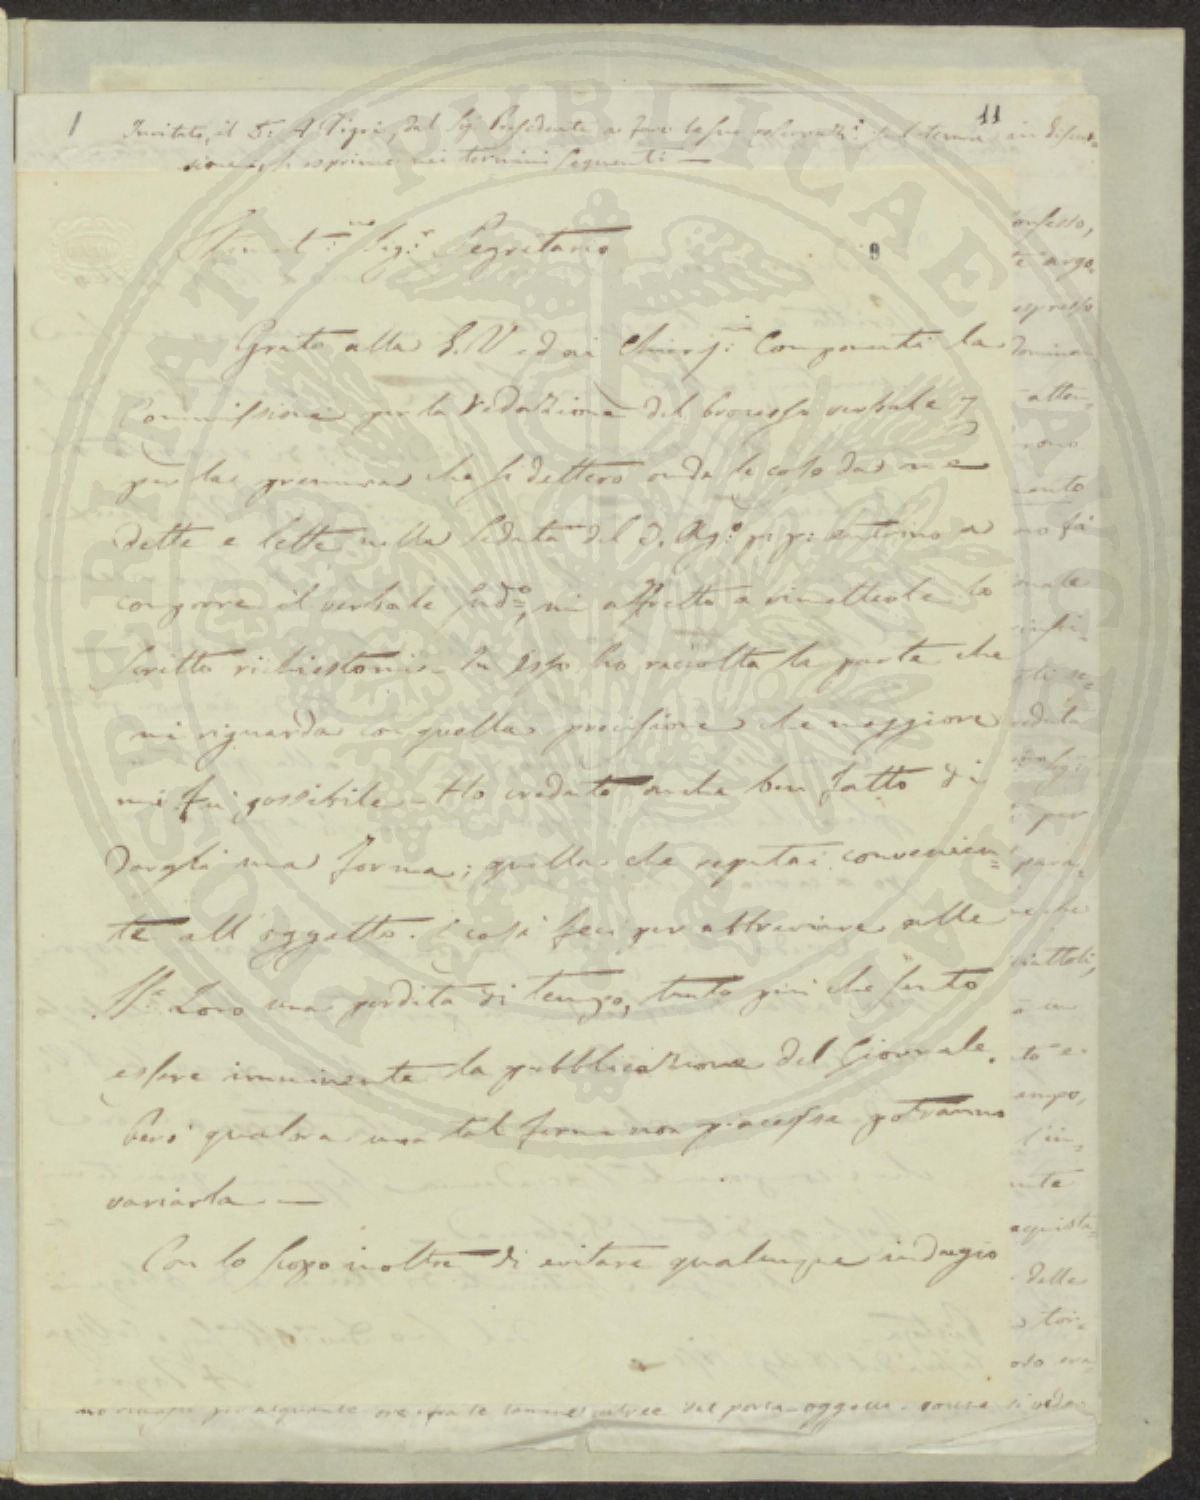 1
11
Invitato, il D: A. Tigri, dal Sig. Presidente a fare le sue osservaz.i sul tema in discus-
sione, si esprime nei termini seguenti —
9
Stimat.mo Sig.r Segretario
Grato alla S.V. ed ai Chiars.mi Componenti la
Commissione per la redazione del processo verbale,
per la premura che si dettero onde le cose da me
dette e lette nella seduta del d. Ag.o p.p: entrino a
comporre il verbale sud.o, mi affretto a rimetterle lo
scritto richiestomi. In esso ho raccolta la parte che
mi riguarda con quella precisione che maggiore
mi fu possibile. Ho creduto anche ben fatto di
dargli una forma; quella che reputai convenien=
te all'oggetto. E così feci per abbreviare alle
SS.e Loro una perdita di tempo, tanto più che sento
essere imminente la pubblicazione del Giornale.
Però qualora una tal forma non piacesse potranno
variarla. —
Con lo scopo inoltre di evitare qualunque indugio
onfesso,
argo.
espresso
atten=
mento
no fa
mate
eduta
per
para=
anche
to e
ampo,
l'in=
ente
acquista
delle
oso era
per alquante ore fra le lamine del porta-oggetti
PROSPERITATI PUBLICAE AUGENDAE